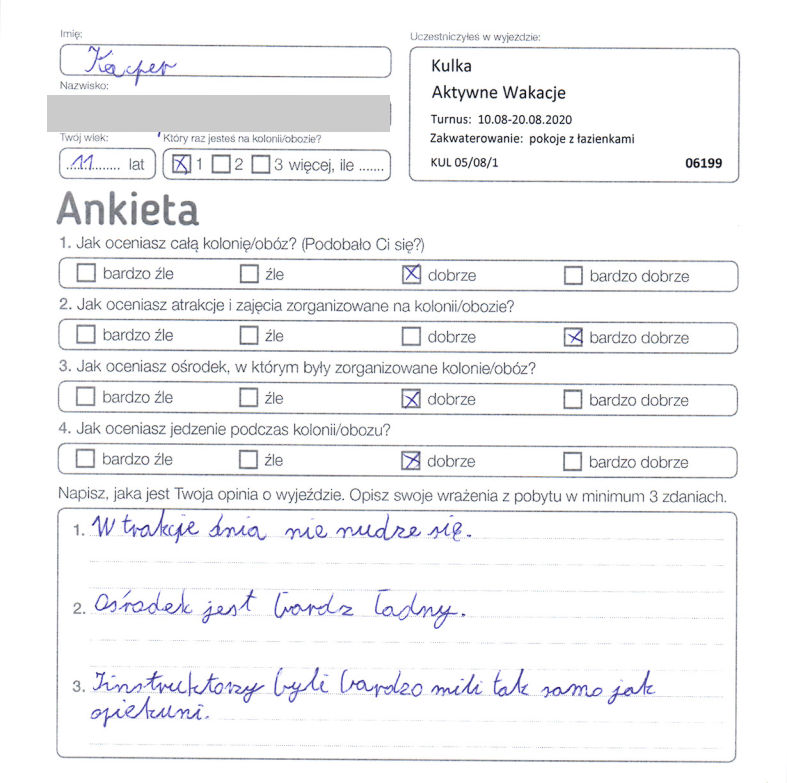 Imię:
Kacper
Nazwisko:
Twój wiek:
11 lat
Który raz jesteś na kolonii/obozie?
1 2 3 więcej, ile .......
Uczestniczyłeś w wyjeździe:
Kulka
Aktywne Wakacje
Turnus: 10.08-20.08.2020
Zakwaterowanie: pokoje z łazienkami
KUL 05/08/1 06199
Ankieta
1. Jak oceniasz całą kolonię/obóz? (Podobało Ci się?)
bardzo źle źle dobrze bardzo dobrze
2. Jak oceniasz atrakcje i zajęcia zorganizowane na kolonii/obozie?
bardzo źle źle dobrze bardzo dobrze
3. Jak oceniasz ośrodek, w którym były zorganizowane kolonie/obóz?
bardzo źle źle dobrze bardzo dobrze
4. Jak oceniasz jedzenie podczas kolonii/obozu?
bardzo źle źle dobrze bardzo dobrze
Napisz, jaka jest Twoja opinia o wyjeździe. Opisz swoje wrażenia z pobytu w minimum 3 zdaniach.
1. W trakcje dnia nie nudze się.
2. Ośrodek jest bardz ładny.
3. Iinstruktorzy byli bardzo mili tak samo jak
opiekuni.